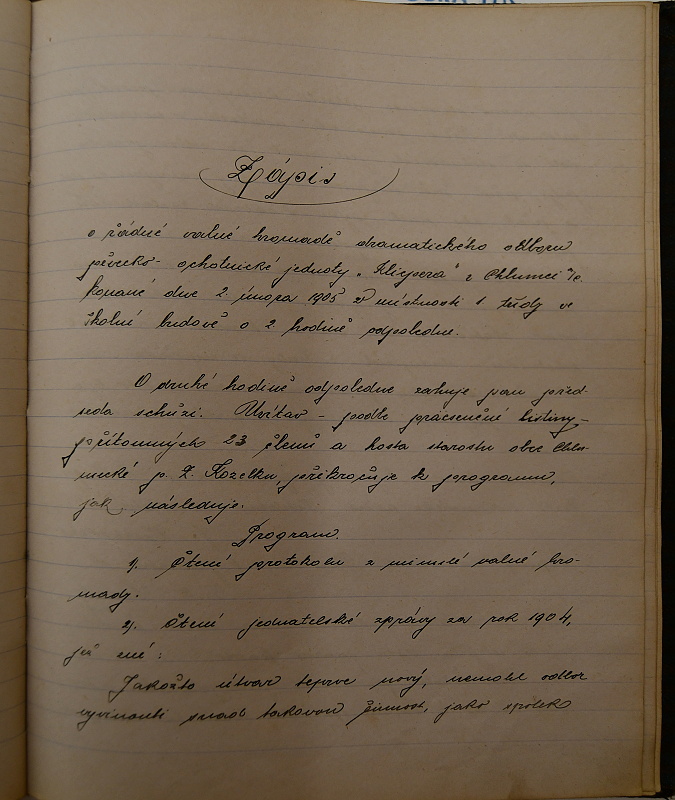 Zápis
o řádné valné hromadě dramatického odboru
pěvecko-ochotnické jednoty „Klicpera“ v Chlumci n/C.
konané dne 2. února 1905 v místnosti 1 třídy ve
školní budově o 2. hodině odpoledne.
O druhé hodině odpoledne zahajuje pan před-
seda schůzi. Uvítav – podle presenční listiny –
přítomných 23 členů a hosta starostu obce Chlu-
mecké p. Z. Kozelku, přikročuje k programu,
jak následuje.
Program.
1). Čtení protokolu z minulé valné hro-
mady.
2). Čtení jednatelské zprávy za rok 1904,
jež zní:
Jakožto útvar teprve nový, nemohl odbor
vyvinouti snad takovou činnost, jako spolek